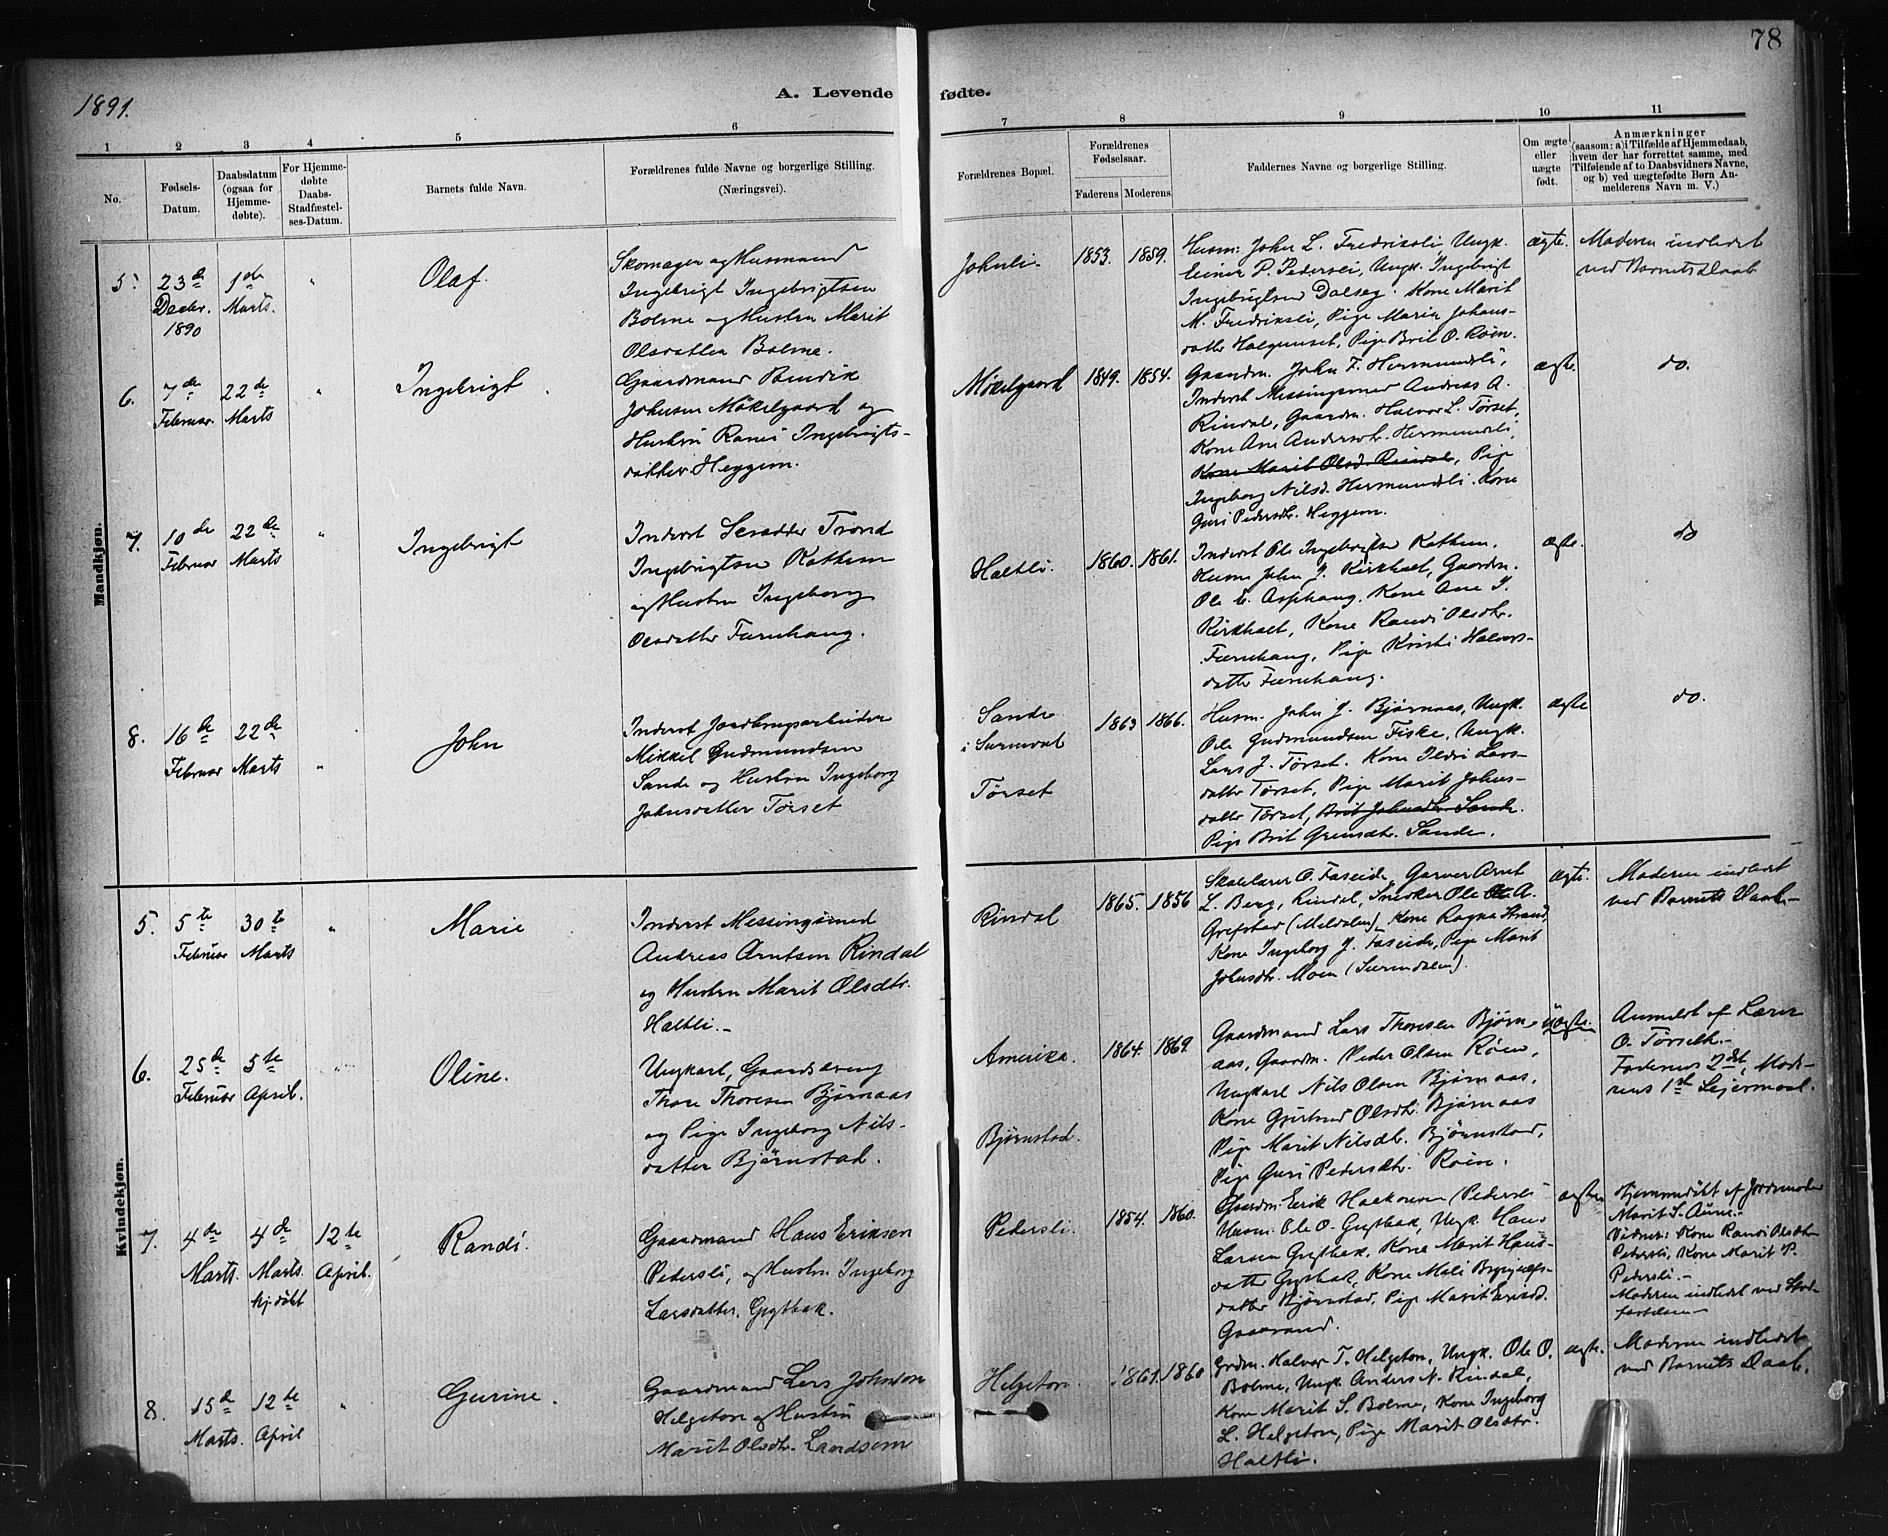 78
1891.
A. Levende fødte.
1 2 3 4 5 6 7 8 9 10 11
No.
Fødsels-
Datum.
Daabsdatum
(ogsaa for
Hjemme-
døbte).
For Hjemme-
døbte
Daabs-
Stadfæstel-
ses-Datum.
Barnets fulde Navn.
Forældrenes fulde Navne og borgerlige Stilling.
(Næringsvei).
Forældrenes Bopæl.
Forældrenes
Fødselsaar.
Faderens Moderens
Faddernes Navne og borgerlige Stilling.
Om ægte
eller
uægte
født.
Anmærkninger
(saasom: a) i Tilfælde af Hjemmedaab,
hvem der har forrettet samme, med
Tilføiende af to Daabsvidners Navne,
og b) ved uægtefødte Børn An-
melderens Navn m. V.)
Mandkjøn.
5.
23de
Decbr.
1890
1ste
Marts.
"
Olaf.
Skomager og Husmand
Ingebrigt Ingebrigtsen
Bolme og Hustru Marit
Olsdatter Bolme.
Johnli
1853. 1859.
Husm: John L. Fredriksli, Ungk.
Einer P. Pedersli, Ungk. Ingebrigt
Ingebrigtsen Dalseg. Kone Marit
M. Fredriksli, Pige Marin Johans-
datter Halgunset, Pige Brit O. Røen.
ægte.
Moderen indledet
ved Barnets Daab
6.
7de
Februar
22de
Marts
"
Ingebrigt
Gaardmand Bendik
Johnsen Møkelgaard og
Hustru Rani Ingebrigts-
datter Heggem.
Møkelgaard
1849. 1854.
Gaardm. John F. Hermundsli,
Inderst Messingsmed Andreas A.
Rindal, Gaardm. Halvor L. Tørset,
Kone Ane Andersdtr. Hermundsli,
Kone Marit Olsd. Rindal, Pige
Ingeborg Nilsd. Hermundsli. Kone
Guri Pedersdtr. Heggem.
ægte.
do.
7.
10de
Februar
22de
Marts
"
Ingebrigt
Inderst Skrædder Trond
Ingebrigtsen Kathem
og Hustru Ingeborg
Olsdatter Furuhaug.
Haltli.
1860. 1861.
Inderst Ole Ingebrigtsen Kathem.
Husm John J. Kirkholt, Gaardm.
Ole E. Asphaug. Kone Ane J.
Kirkholt, Kone Randi Olsdtr.
Furuhaug, Pige Kristi Halvors-
datter Furuhaug.
ægte.
do
8.
16de
Februar
22de
Marts
"
John
Inderst Jordbrugsarbeider
Mikkel Gudmundsen
Sande og Hustru Ingeborg
Johnsdatter Tørset
Sande
i Surendal
Tørset
1863 1866.
Husm. John J. Bjørnaas, Ungk.
Ole Gudmundsen Fiske, Ungk.
Lars J. Tørset. Kone Ildri Lars-
datter Tørset, Pige Marit Johns-
datter Tørset, Brit Johnsdtr. Sande.
Pige Brit Gremsdtr. Sande.
ægte
do.
Kvindekjøn.
5.
5te
Februar
30te
Marts
"
Marie
Inderst Messingsmed
Andreas Arntsen Rindal
og Hustru Marit Olsdtr.
Haltli.
Rindal
1865. 1856
Skolelærer O. Faseide, Garver Arnt
L. Berg, Rindal, Snedker Ole A.
Grefstad (Meldalen), Kone Ragna Strand,
Kone Ingeborg J. Faseide, Pige Marit
Johnsdtr. Moen (Surendalen).
ægte.
Moderen indledet
ved Barnets Daab
6.
25de
Februar
5te
April.
"
Oline.
Ungkarl, Gaardsdreng
Thore Thoresen Bjørnaas
og Pige Ingeborg Nils-
datter Bjørnstad.
Amerika.
Bjørnstad.
1864. 1869.
Gaardmand Lars Thoresen Bjørn-
aas, Gaardm. Peder Olsen Røen,
Ungkarl Nils Olsen Bjørnaas,
Kone Gjertrud Olsdtr. Bjørnaas
Pige Marit Nilsdtr. Bjørnstad,
Pige Guri Pedersdtr. Røen.
uægte.
Anmeldt af Lærer
O. Tørseth.
Faderens 2det, Mode-
rens 1ste Leiermaal.
7.
4de
Marts.
4de
Marts.
hj.døbt
12te
April.
Randi.
Gaardmand Hans Eriksen
Pedersli, og Hustru Ingeborg
Larsdatter Grytbak.
Pedersli.
1854. 1860.
Gaardm. Erik Haakonsen Pedersli
Husm. Ole O. Grytbak, Ungk. Hans
Larsen Grytbak, Kone Marit Hans-
datter Grytbak, Kone Mali Brynjulfs-
datter Bjørnstad, Pige Marit Eriksd.
Gaasvand.
ægte
Hjemmedøbt af Jordmoder
Marit S. Aune.
Vidner: Kone Randi Olsdtr.
Pedersli, Kone Marit P.
Pedersli.
Moderen indledet ved Stad-
fæstelsen
8.
15de
Marts.
12te
April
"
Gurine.
Gaardmand Lars Johnsen
Helgeton og Hustru
Marit Olsdtr. Landsem
Helgeton.
1861. 1860
Grdm. Halvor T. Helgeton, Ungk. Ole O.
Bolme, Ungk. Anders N. Rindal,
Kone Marit S. Bolme, Kone Ingeborg
L. Helgeton, Pige Marit Olsdtr.
Haltli.
ægte.
Moderen indledet
ved Barnets Daab.